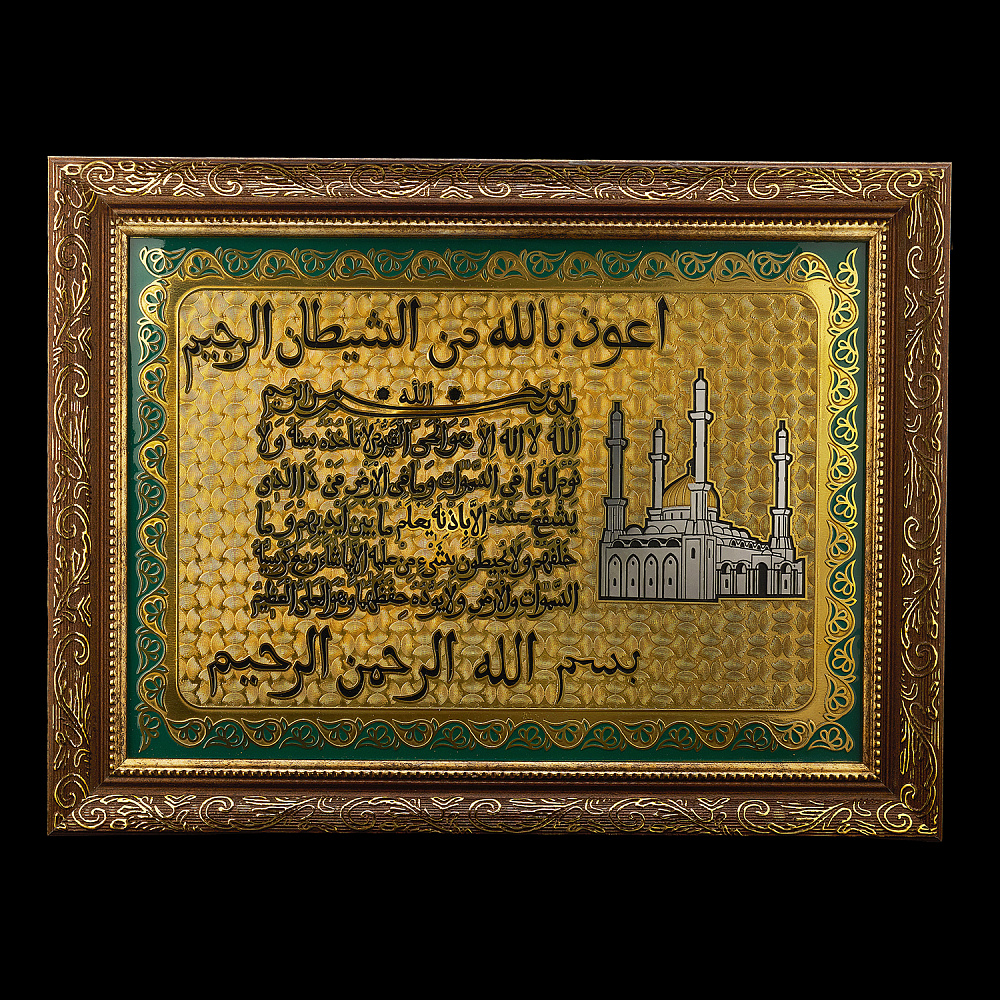 اعوذ بالله من الشيطان الرجيم
بسم الله الرحمن الرحيم
الله لا اله الا هو الحي القيوم لا تأخذه سنة ولا
نوم له ما في السموات وما في الارض من ذا الذي
يشفع عنده الا باذنه يعلم ما بين ايديهم وما
خلفهم ولا يحيطون بشيء من علمه الا بما شاء وسع كرسيه
السموات والارض ولا يوده حفظهما وهو العلي العظيم
بسم الله الرحمن الرحيم